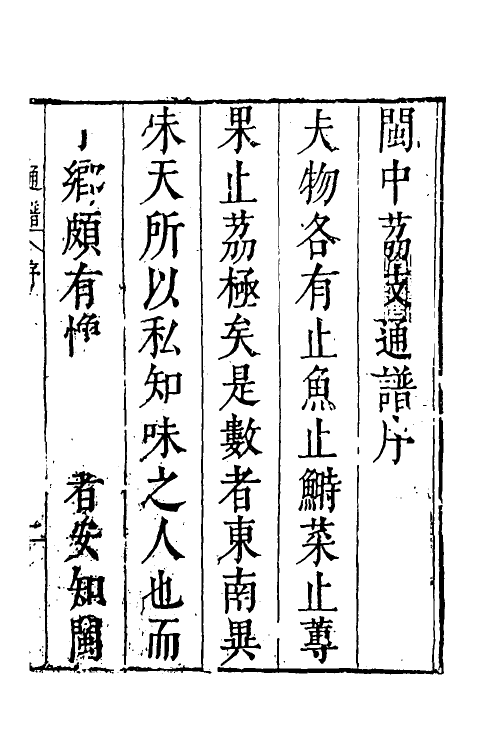 閩中荔支通譜序
夫物各有止魚止鰣菜止蓴
果止荔極矣是數者東南異
味天所以私知味之人也而
鄉頗有惟 者安知閩
通譜 序